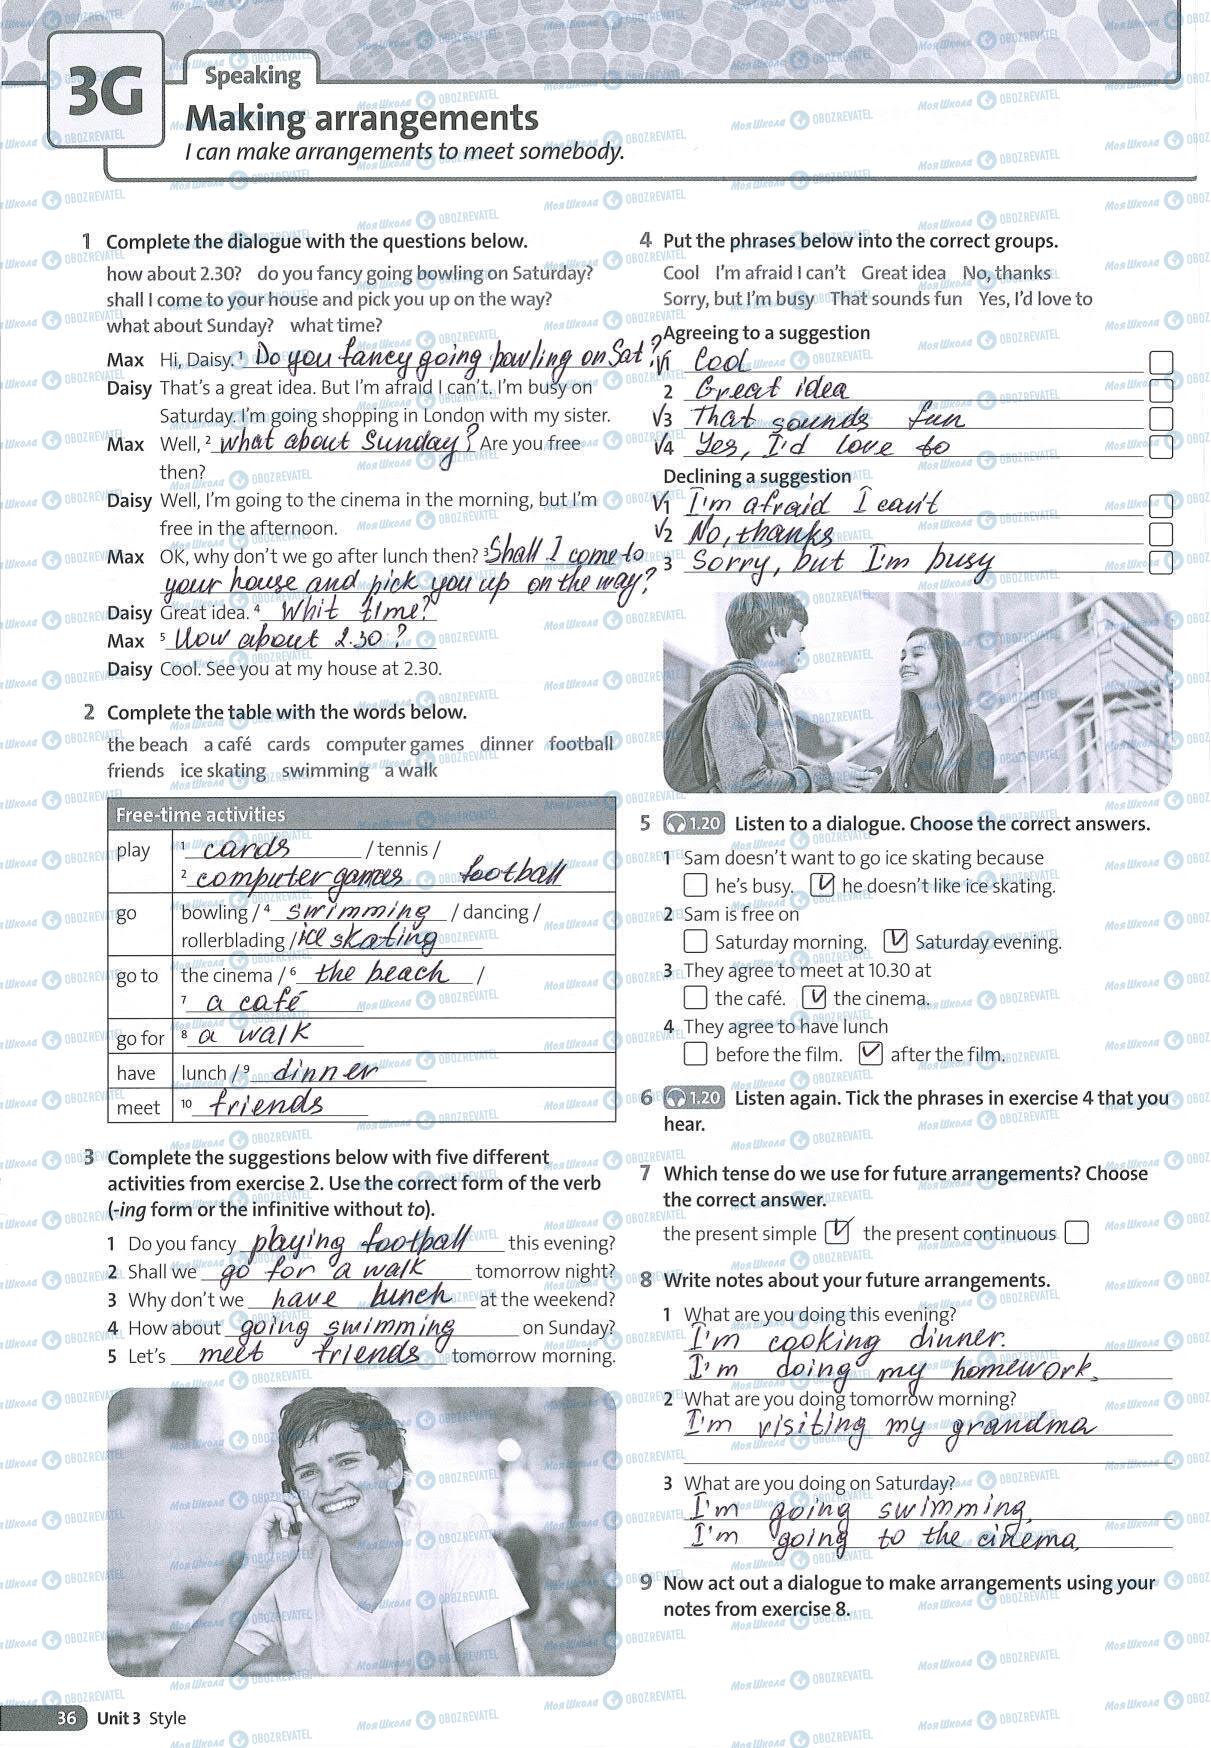 3G
Speaking
Making arrangements
I can make arrangements to meet somebody.
1 Complete the dialogue with the questions below.
how about 2.30? do you fancy going bowling on Saturday?
shall I come to your house and pick you up on the way?
what about Sunday? what time?
Max Hi, Daisy. 1 Do you fancy going bowling on Sat?
Daisy That's a great idea. But I'm afraid I can't. I'm busy on
Saturday. I'm going shopping in London with my sister.
Max Well, 2 what about Sunday? Are you free
then?
Daisy Well, I'm going to the cinema in the morning, but I'm
free in the afternoon.
Max OK, why don't we go after lunch then? 3 Shall I come to
your house and pick you up on the way?
Daisy Great idea. 4 Whit time?
Max 5 How about 2.30?
Daisy Cool. See you at my house at 2.30.
2 Complete the table with the words below.
the beach a café cards computer games dinner football
friends ice skating swimming a walk
Free-time activities
play 1 cards / tennis /
2 computer games football
go bowling / 4 swimming / dancing /
rollerblading / ice skating
go to the cinema / 6 the beach /
7 a café
go for 8 a walk
have lunch / 9 dinner
meet 10 friends
3 Complete the suggestions below with five different
activities from exercise 2. Use the correct form of the verb
(-ing form or the infinitive without to).
1 Do you fancy playing football this evening?
2 Shall we go for a walk tomorrow night?
3 Why don't we have lunch at the weekend?
4 How about going swimming on Sunday?
5 Let's meet friends tomorrow morning.
36 Unit 3 Style
4 Put the phrases below into the correct groups.
Cool I'm afraid I can't Great idea No, thanks
Sorry, but I'm busy That sounds fun Yes, I'd love to
Agreeing to a suggestion
V1 Cool
2 Great idea
V3 That sounds fun
V4 Yes, I'd love to
Declining a suggestion
V1 I'm afraid I can't
V2 No, thanks
3 Sorry, but I'm busy
5 1.20 Listen to a dialogue. Choose the correct answers.
1 Sam doesn't want to go ice skating because
he's busy. V he doesn't like ice skating.
2 Sam is free on
Saturday morning. V Saturday evening.
3 They agree to meet at 10.30 at
the café. V the cinema.
4 They agree to have lunch
before the film. V after the film.
6 1.20 Listen again. Tick the phrases in exercise 4 that you
hear.
7 Which tense do we use for future arrangements? Choose
the correct answer.
the present simple V the present continuous
8 Write notes about your future arrangements.
1 What are you doing this evening?
I'm cooking dinner.
I'm doing my homework.
2 What are you doing tomorrow morning?
I'm visiting my grandma
3 What are you doing on Saturday?
I'm going swimming.
I'm going to the cinema.
9 Now act out a dialogue to make arrangements using your
notes from exercise 8.
Моя Школа OBOZREVATEL